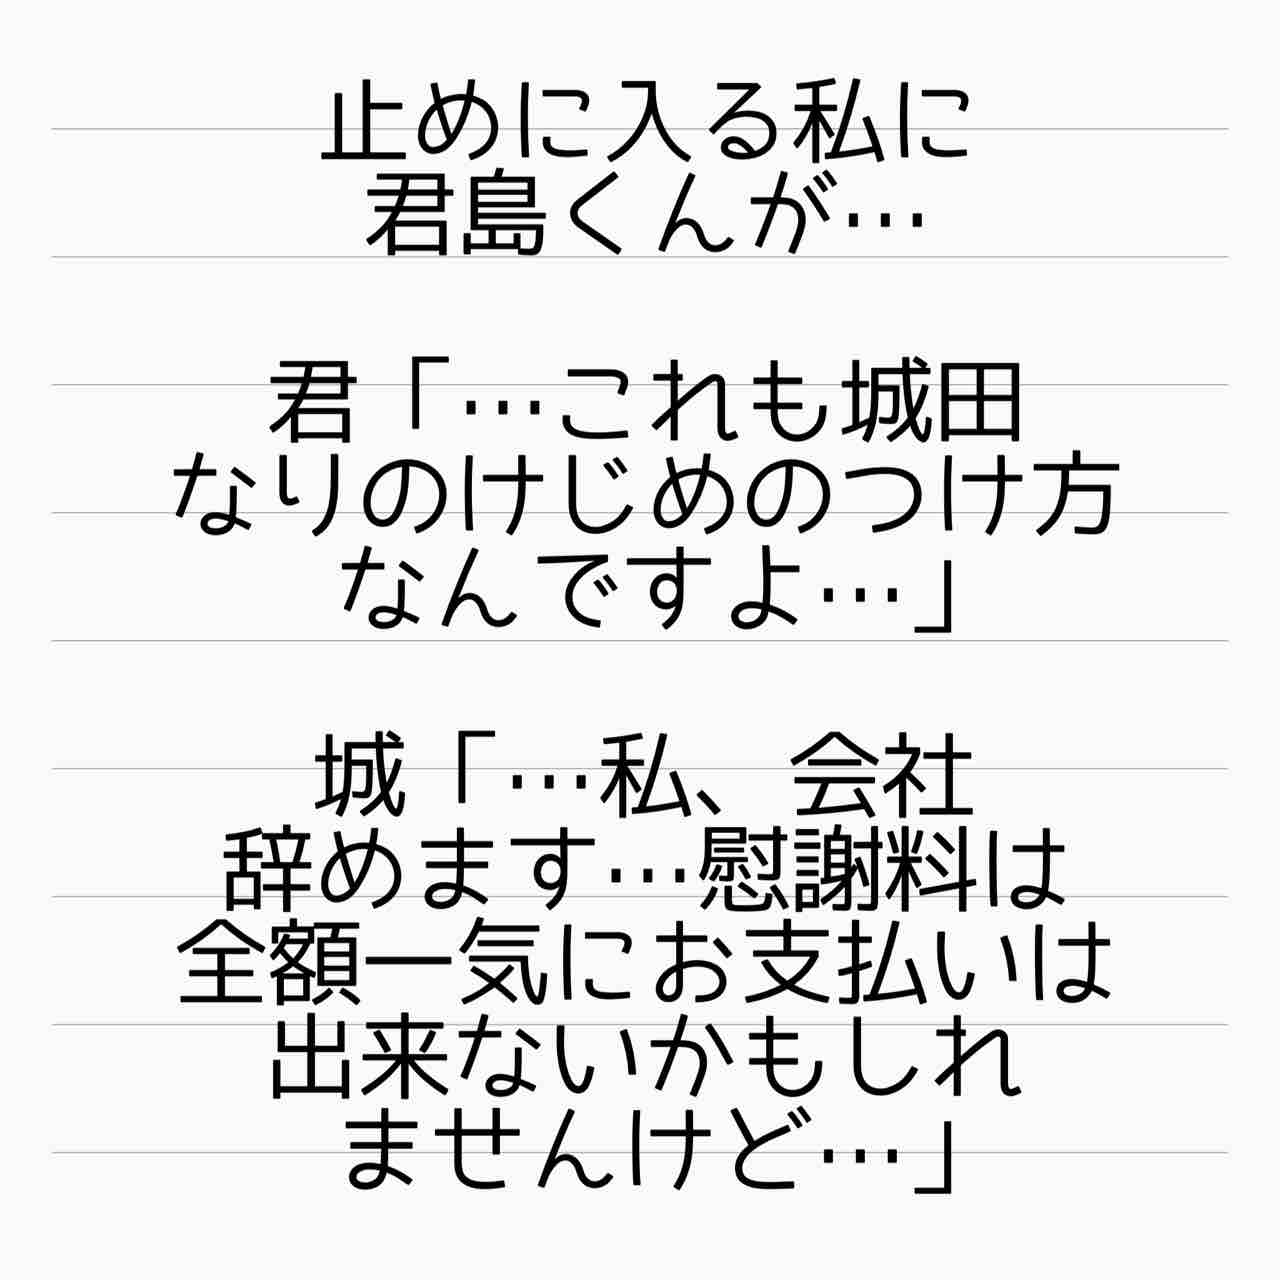 止めに入る私に
君島くんが…
君「…これも城田
なりのけじめのつけ方
なんですよ…」
城「…私、会社
辞めます…慰謝料は
全額一気にお支払いは
出来ないかもしれ
ませんけど…」